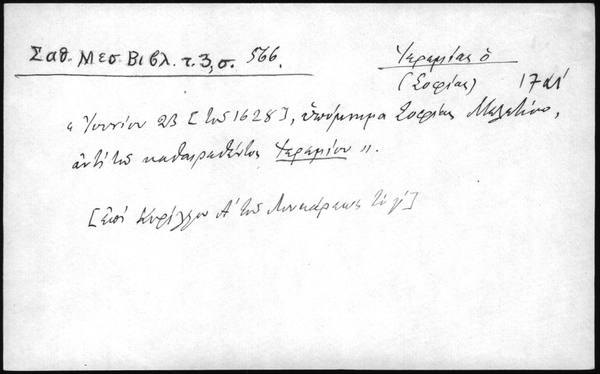 Σαθ. Μεσ. Βιβλ. τ. 3, σ. 566.
Ἱερεμίας ὁ
(Σοφίας) 17 αἰ
« Ἰουνίου 23 [τοῦ 1628], ὑπόμνημα Σοφίας Μελετίου,
ἀντὶ τοῦ καθαιρεθέντος Ἱερεμίου ».
[ἐπὶ Κυρίλλου Α΄ τοῦ Λουκάρεως τὸ γ΄]